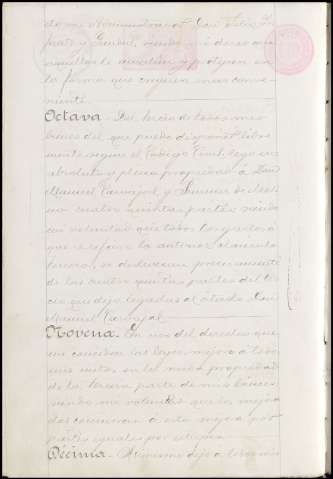 do mi Administrador Don Félix
y siendo mi deseo que
aquellos le y protejan en
la forma que crean mas conve
niente.
Octava. Del tercio de todos mis
bienes del que puedo disponer libre
mente segun el Código Civil, lego en
absoluta y plena propiedad á Don
Manuel Carvajal y Jimenez de
no cuatro quintas partes siendo
mi voluntad que todos los gastos á
que se refiere la anterior clausula
tercera, se deduzcan precisamente
de las cuatro quintas partes del ter
cio que dejo legadas al citado Don
Manuel Carvajal.
Novena. En uso del derecho que
me conceden las leyes mejoro á todos
mis nietos en la nuda propiedad
de la tercera parte de mis bienes
siendo mi voluntad que los mejora
dos concurran á esta mejora por
partes iguales por estirpes.
Décima. Asimismo dejo á todos mis